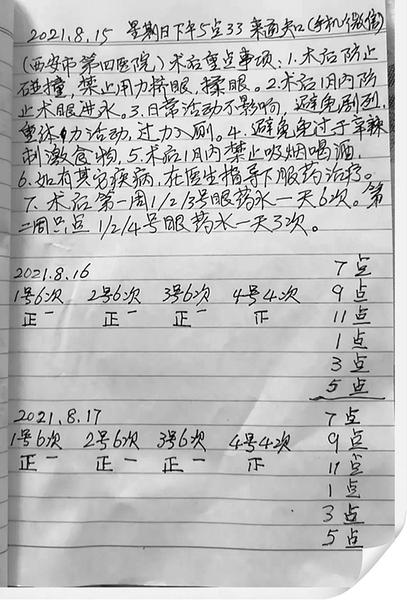 2021.8.15 星期日下午5点33 来面夹口(手机微信)
(西安市第四医院)术后重点事项:1.术后防止
碰撞,禁止用力挤眼,揉眼。2.术后1月内防
止术眼进水。3.日常活动不影响,避免剧烈,
重体力活动,过力入厕。4.避免过于辛辣
刺激食物,5.术后1月内禁止吸烟喝酒.
6.如有其它疾病,在医生指导下服药治疗。
7.术后第一周1/2/3号眼药水一天6次。第
二周只点1/2/4号眼药水一天3次。
2021.8.16 7点
1号6次 2号6次 3号6次 4号4次 9点
正一 正一 正一 正 11点
1点
3点
5点
2021.8.17 7点
1号6次 2号6次 3号6次 4号4次 9点
正一 正一 正一 正 11点
1点
3点
5点